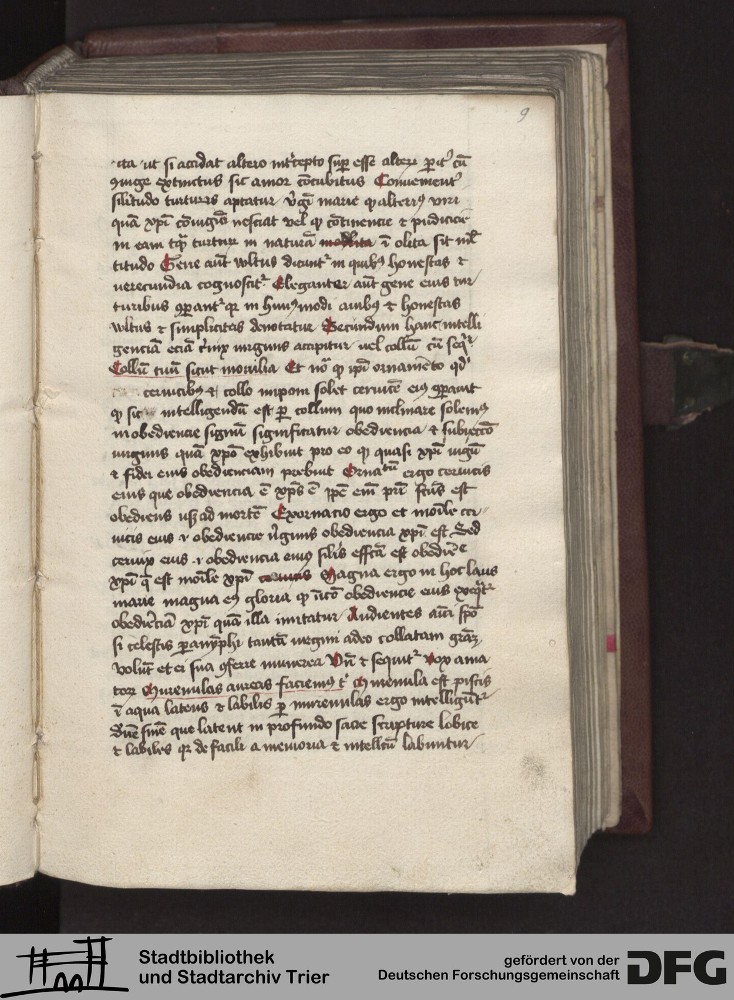 9
ita ut si accidat altero intercepto super esse alteri perit cum
coniuge extinctus sic amor concubitus Convenienter
similitudo turturis aptatur virgini marie que alterius viri
quam christi coniugium nesciat vel que continencie et pudicicie
in eam tamquam turturis in naturam
titudo Gene autem vultus dicuntur in quibus honestas et
verecundia cognoscitur Eleganter autem gene eius tur
turibus comparantur quia in huiusmodi avibus et honestas
vultus et simplicitas denotatur Secundum hanc intelli
genciam eciam cervix virginis accipitur vel collum cum sequitur
Collum tuum sicut monilia Et ideo quia ipsi ornamento quod
cervicibus et collo imponi solet cervicem eius comparavit
quia sic intelligendum est per collum quo inclinare solemus
in obediencie signum significatur obediencia et subiectio
virginis quam christo exhibuit pro eo quod quasi christi iugum
et fidei eius obedienciam prebuit Ornatus ergo cervicis
eius que obediencia est christus est ipse enim patri factus est
obediens usque ad mortem Exornacio ergo et monile cer
vicis eius id est obediencie virginis obediencia christi est Sed
cervix eius id est obediencia eius similis effecta est obediencie
christi que est monile christi Magna ergo in hoc laus
marie magna eius gloria quia virtus obediencie eius exequitur
obedienciam christi quam illa imitatur Audientes autem sponsi
si celestis paranymphi tantam virgini a deo collatam graciam
volunt et ei sua conferre munera Unde et sequitur Vox ama
torum Murenulas aureas faciemus tibi Murenula est piscis
in aqua latens et labilis per murenulas ergo intelliguntur
divine sentencie que latent in profundo sacre scripture lubrice
et labiles quia de facili a memoria et intellectu labuntur
Stadtbibliothek
und Stadtarchiv Trier
gefördert von der
Deutschen Forschungsgemeinschaft
DFG